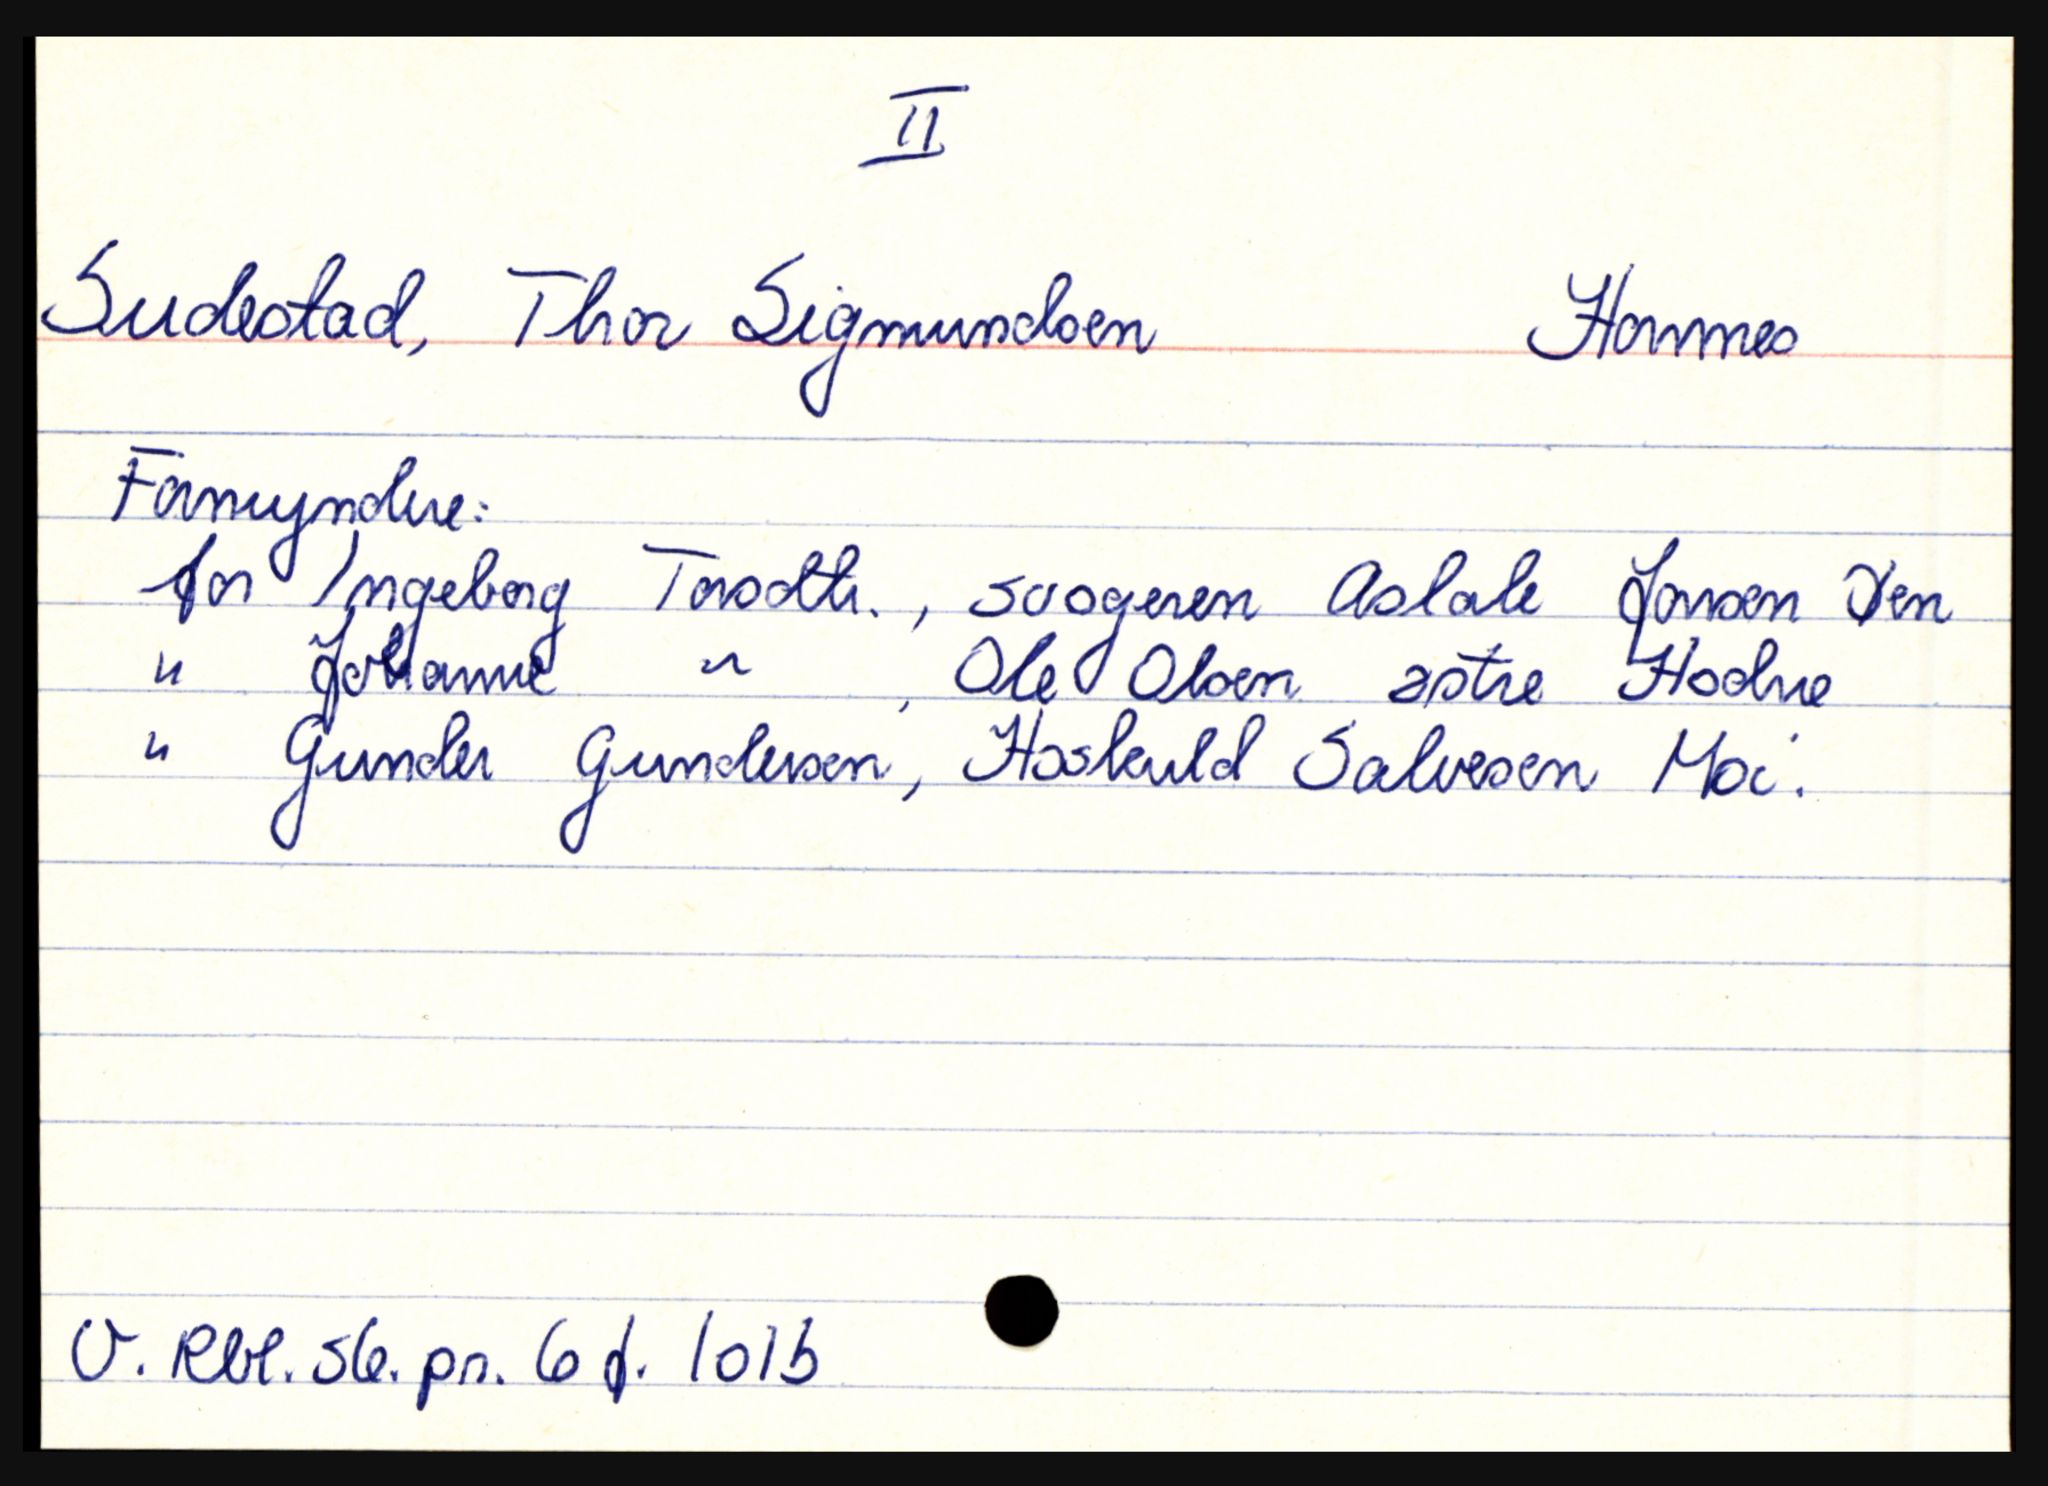 II
Sudestad, Thor Sigmundsen Hornnes
Formyndere:
for Ingeborg Torsdtr., svogeren Aslak Jonsen Uen
" Johanne " , Ole Olsen østre Hodne
" Gunder Gundersen, Høskuld Salvesen Moi.
V. Rbl. sk. pr. 6 f. 101b